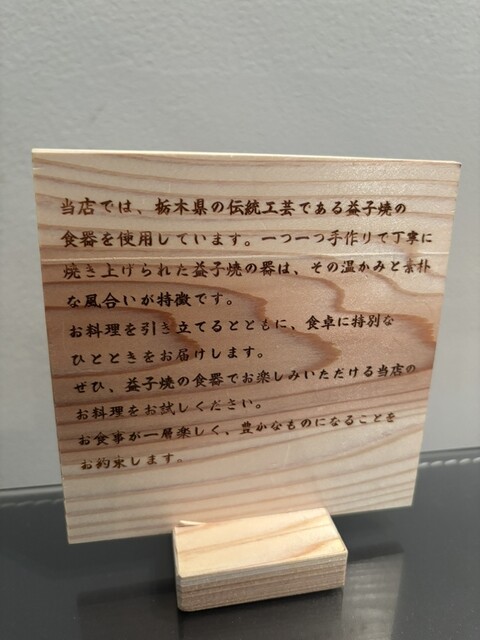 当店では、栃木県の伝統工芸である益子焼の
食器を使用しています。一つ一つ手作りで丁寧に
焼き上げられた益子焼の器は、その温かみと素朴
な風合いが特徴です。
お料理を引き立てるとともに、食卓に特別な
ひとときをお届けします。
ぜひ、益子焼の食器でお楽しみいただける当店の
お料理をお試しください。
お食事が一層楽しく、豊かなものになることを
お約束します。